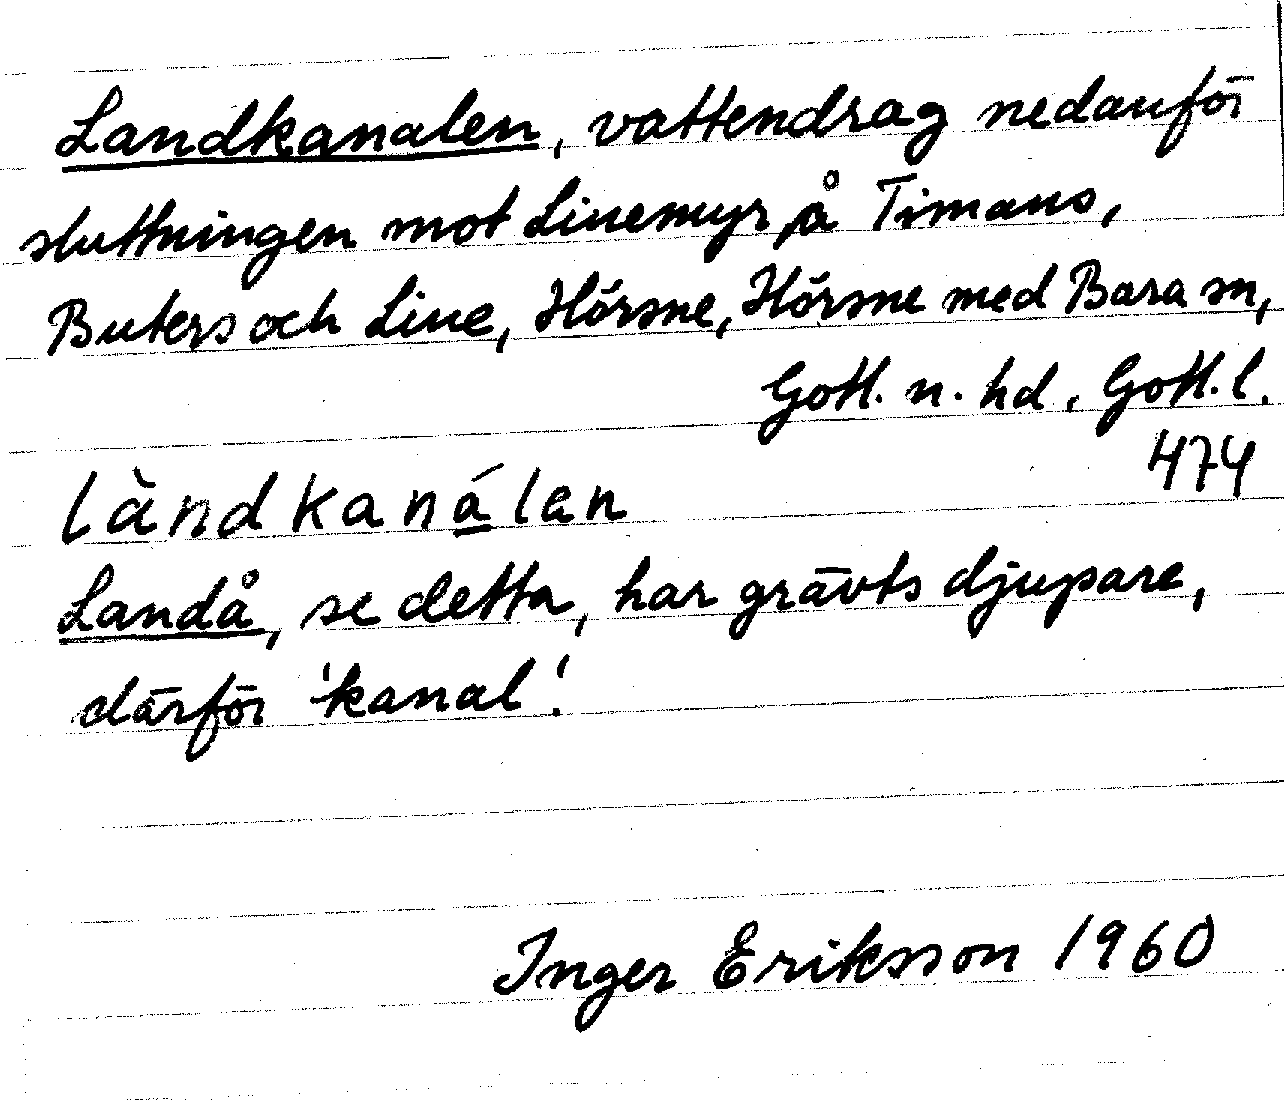 Landkanalen, vattendrag nedanför
sluttningen mot Linemyr på Timans,
Buters och Line, Hörsne, Hörsne med Bara sn,
Gotl. n. hd, Gotl. l.
474
làndkanálen
Landå, se detta, har grävts djupare,
därför 'kanal'.
Inger Eriksson 1960